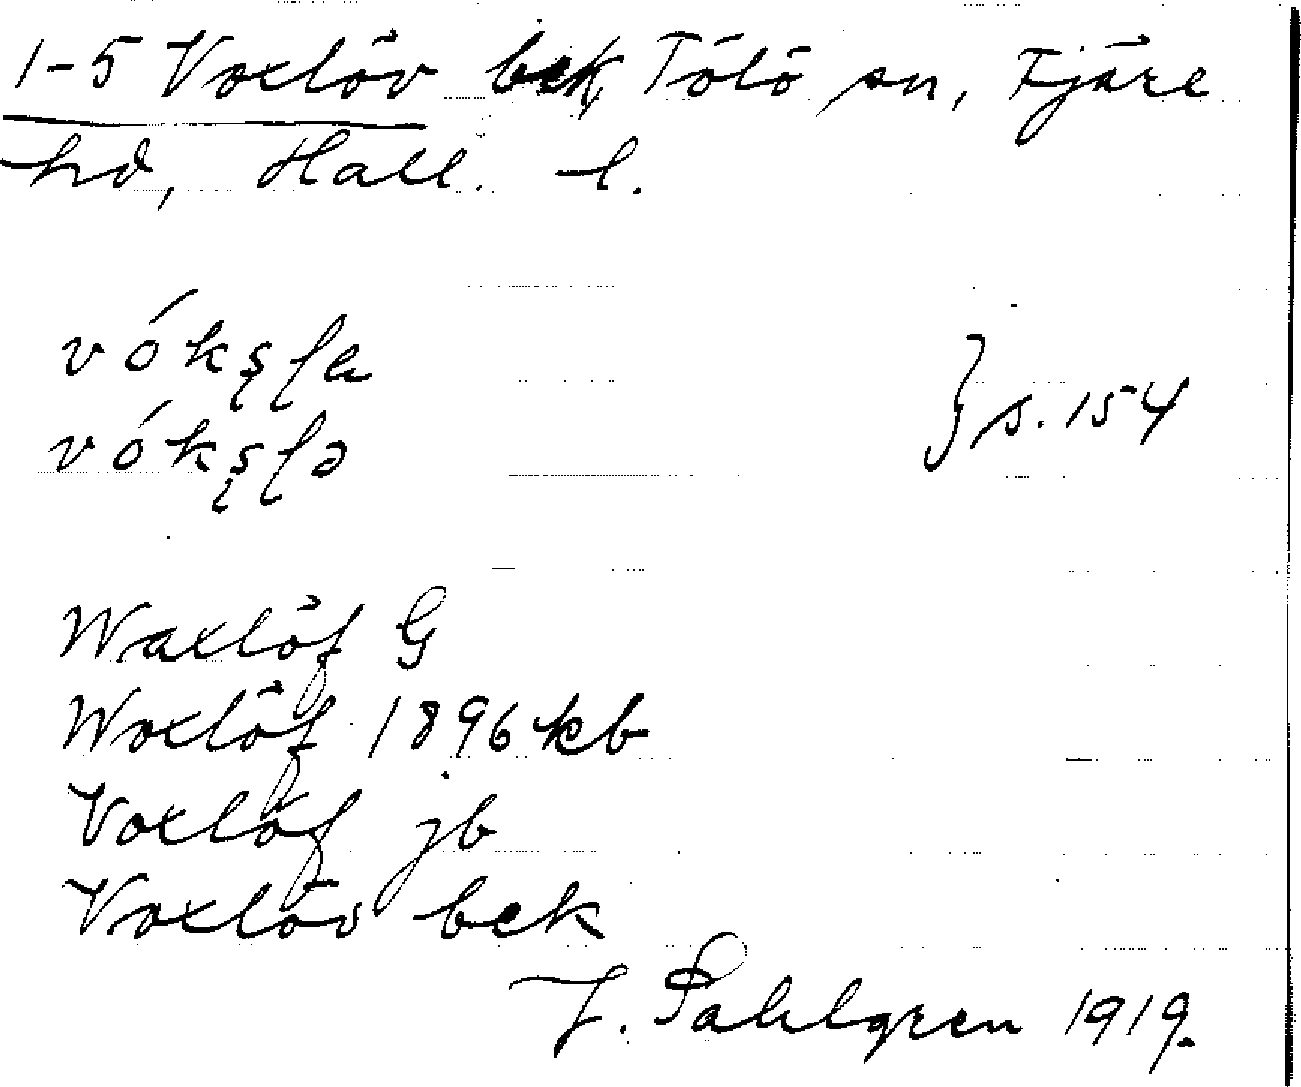 1-5 Voxlöv bek Tölö sn, Fjäre
hd, Hall. l.
vóksla
vókslə
} s. 154
Waxlöf G
Woxlöf 1896 kb
Voxlöf jb
Voxlöv bek
J. Sahlgren 1919.